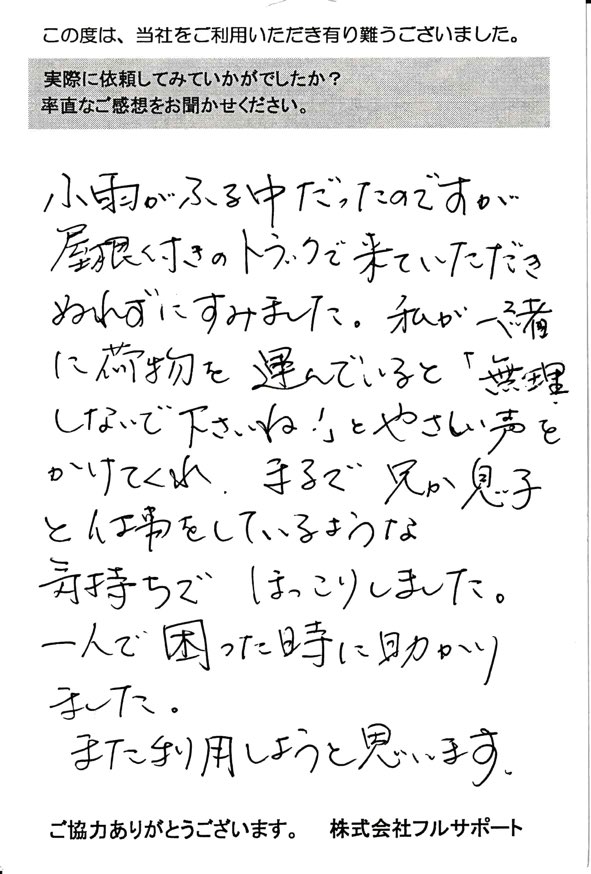 この度は、当社をご利用いただき有り難うございました。
実際に依頼してみていかがでしたか？
率直なご感想をお聞かせください。
小雨がふる中だったのですが
屋根付きのトラックで来ていただき
ぬれずにすみました。私が一緒
に荷物を運んでいると「無理
しないで下さいね!」とやさしい声を
かけてくれ、まるで兄か息子
と仕事をしているような
気持ちで ほっこりしました。
一人で困った時に助かり
ました。
また利用しようと思います。
ご協力ありがとうございます。 株式会社フルサポート